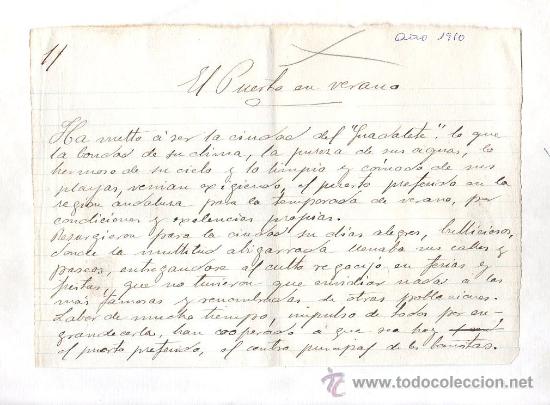 11
año 1910
El Puerto en verano
Ha vuelto á ser la ciudad del "Guadalete" lo que
la bondad de su clima, la pureza de sus aguas, lo
hermoso de su cielo y lo limpio y cómodo de sus
playas, venían exigiendo, el puerto preferido en la
región andaluza para la temporada de verano, por
condiciones y exelencias propias.
Resurgieron para la ciudad su días alegres, bulliciosos,
donde la multitud abigarrada llenaba sus calles y
paseos, entregandose al culto regocijo en ferias y
fiestas, que no tuvieron que envidiar nadas a las
más famosas y renombradas de otras poblaciones.
Labor de mucho tiempo, impulso de todos por en-
grandecerla, han cooperado á que sea hoy
el puerto preferido, el centro principal de los bañistas.
todocoleccion
www.todocoleccion.net